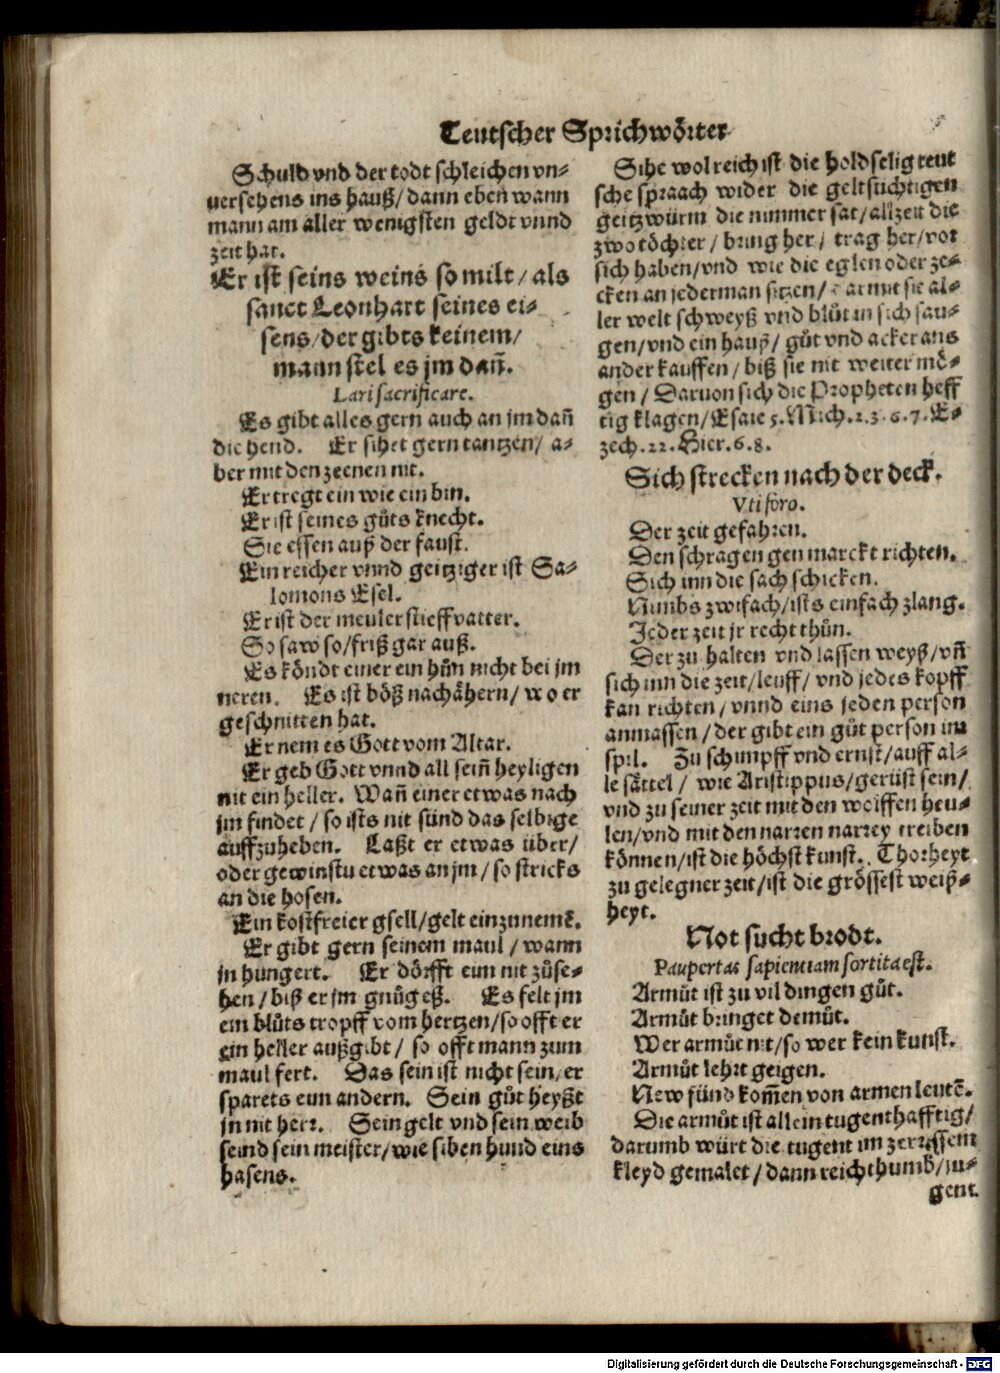 Teutscher Sprichwörter
Schuld vnd der todt schleichen vn-
uersehens ins hauß/dann eben wann
mann am aller wenigsten geldt vnnd
zeit hat.
Er ist seins weins so milt/als
sanct Leonhart seines ei-
sens/der gibts keinem/
mann stel es jm dañ.
Lari sacrificare.
Es gibt alles gern auch an jm dañ
die hend. Er sihet gern tantzen/ a-
ber mit den zeenen nit.
Er tregt ein wie ein bin.
Er ist seines gůts knecht.
Sie essen auß der faust.
Ein reicher vnnd geitziger ist Sa-
lomons Esel.
Er ist der meuler stieffvatter.
So saw so/friß gar auß.
Es köndt einer ein hůn nicht bei jm
neren. Es ist böß nachähern/ wo er
geschnitten hat.
Er nem es Gott vom Altar.
Er geb Gott vnnd all sein̄ heyligen
nit ein heller. Wañ einer etwas nach
jm findet/so ists nit sünd das selbige
auffzuheben. Laßt er etwas über/
oder gewinstu etwas an jm/so stricks
an die hosen.
Ein kostfreier gsell/gelt einzunemẽ.
Er gibt gern seinem maul/wann
jn hungert. Er dörfft eim nit zůse-
hen/biß er jm gnůg eß. Es felt jm
ein blůts tropff vom hertzen/so offt er
ein heller außgibt/ so offt mann zum
maul fert. Das sein ist nicht sein/er
sparets eim andern. Sein gůt heyßt
jn nit herr. Sein gelt vnd sein weib
seind sein meister/wie siben hund eins
hasens.
Sihe wol reich ist die holdselig teut
sche spraach wider die geltsüchtigen
geitzwürm die nimmer sat/allzeit die
zwo töchter/bring her/ trag her/vor
sich haben/vnd wie die eglen oder ze-
cken an jederman sitzen/ damit sie al-
ler welt schweyß vnd blůt in sich sau-
gen/vnd ein hauß/ gůt vnd acker ans
ander kauffen/biß sie nit weiter mö-
gen/Daruon sich die Propheten heff
tig klagen/Esaie 5. Mich. 2.3.6.7. E-
zech. 22. Hier. 6.8.
Sich strecken nach der deck.
Vti foro.
Der zeit gefahren.
Den schragen gen marckt richten.
Sich inn die sach schicken.
Nimbs zwifach/ists einfach zlang.
Jeder zeit jr recht thůn.
Der zu halten vnd lassen weyß/vñ
sich inn die zeit/leuff/ vnd jedes kopff
kan richten/vnnd eins jeden person
anmassen/der gibt ein gůt person im
spil. Zu schimpff vnd ernst/auff al-
le sättel/ wie Aristippus/gerüst sein/
vnd zu seiner zeit mit den wölffen heu-
len/vnd mit den narren narrey treiben
können/ist die höchst kunst. Thorheyt
zu gelegner zeit/ist die grössest weiß-
heyt.
Not sucht brodt.
Paupertas sapientiam sortita est.
Armůt ist zu vil dingen gůt.
Armůt bringet demůt.
Wer armůt nit/so wer kein kunst.
Armůt lehrt geigen.
New fünd kom̃en von armen leutẽ.
Die armůt ist allein tugenthafftig/
darumb würt die tugent im zerrissem
kleyd gemalet/dann reichthumb/ju-
gent.
Digitalisierung gefördert durch die Deutsche Forschungsgemeinschaft - DFG